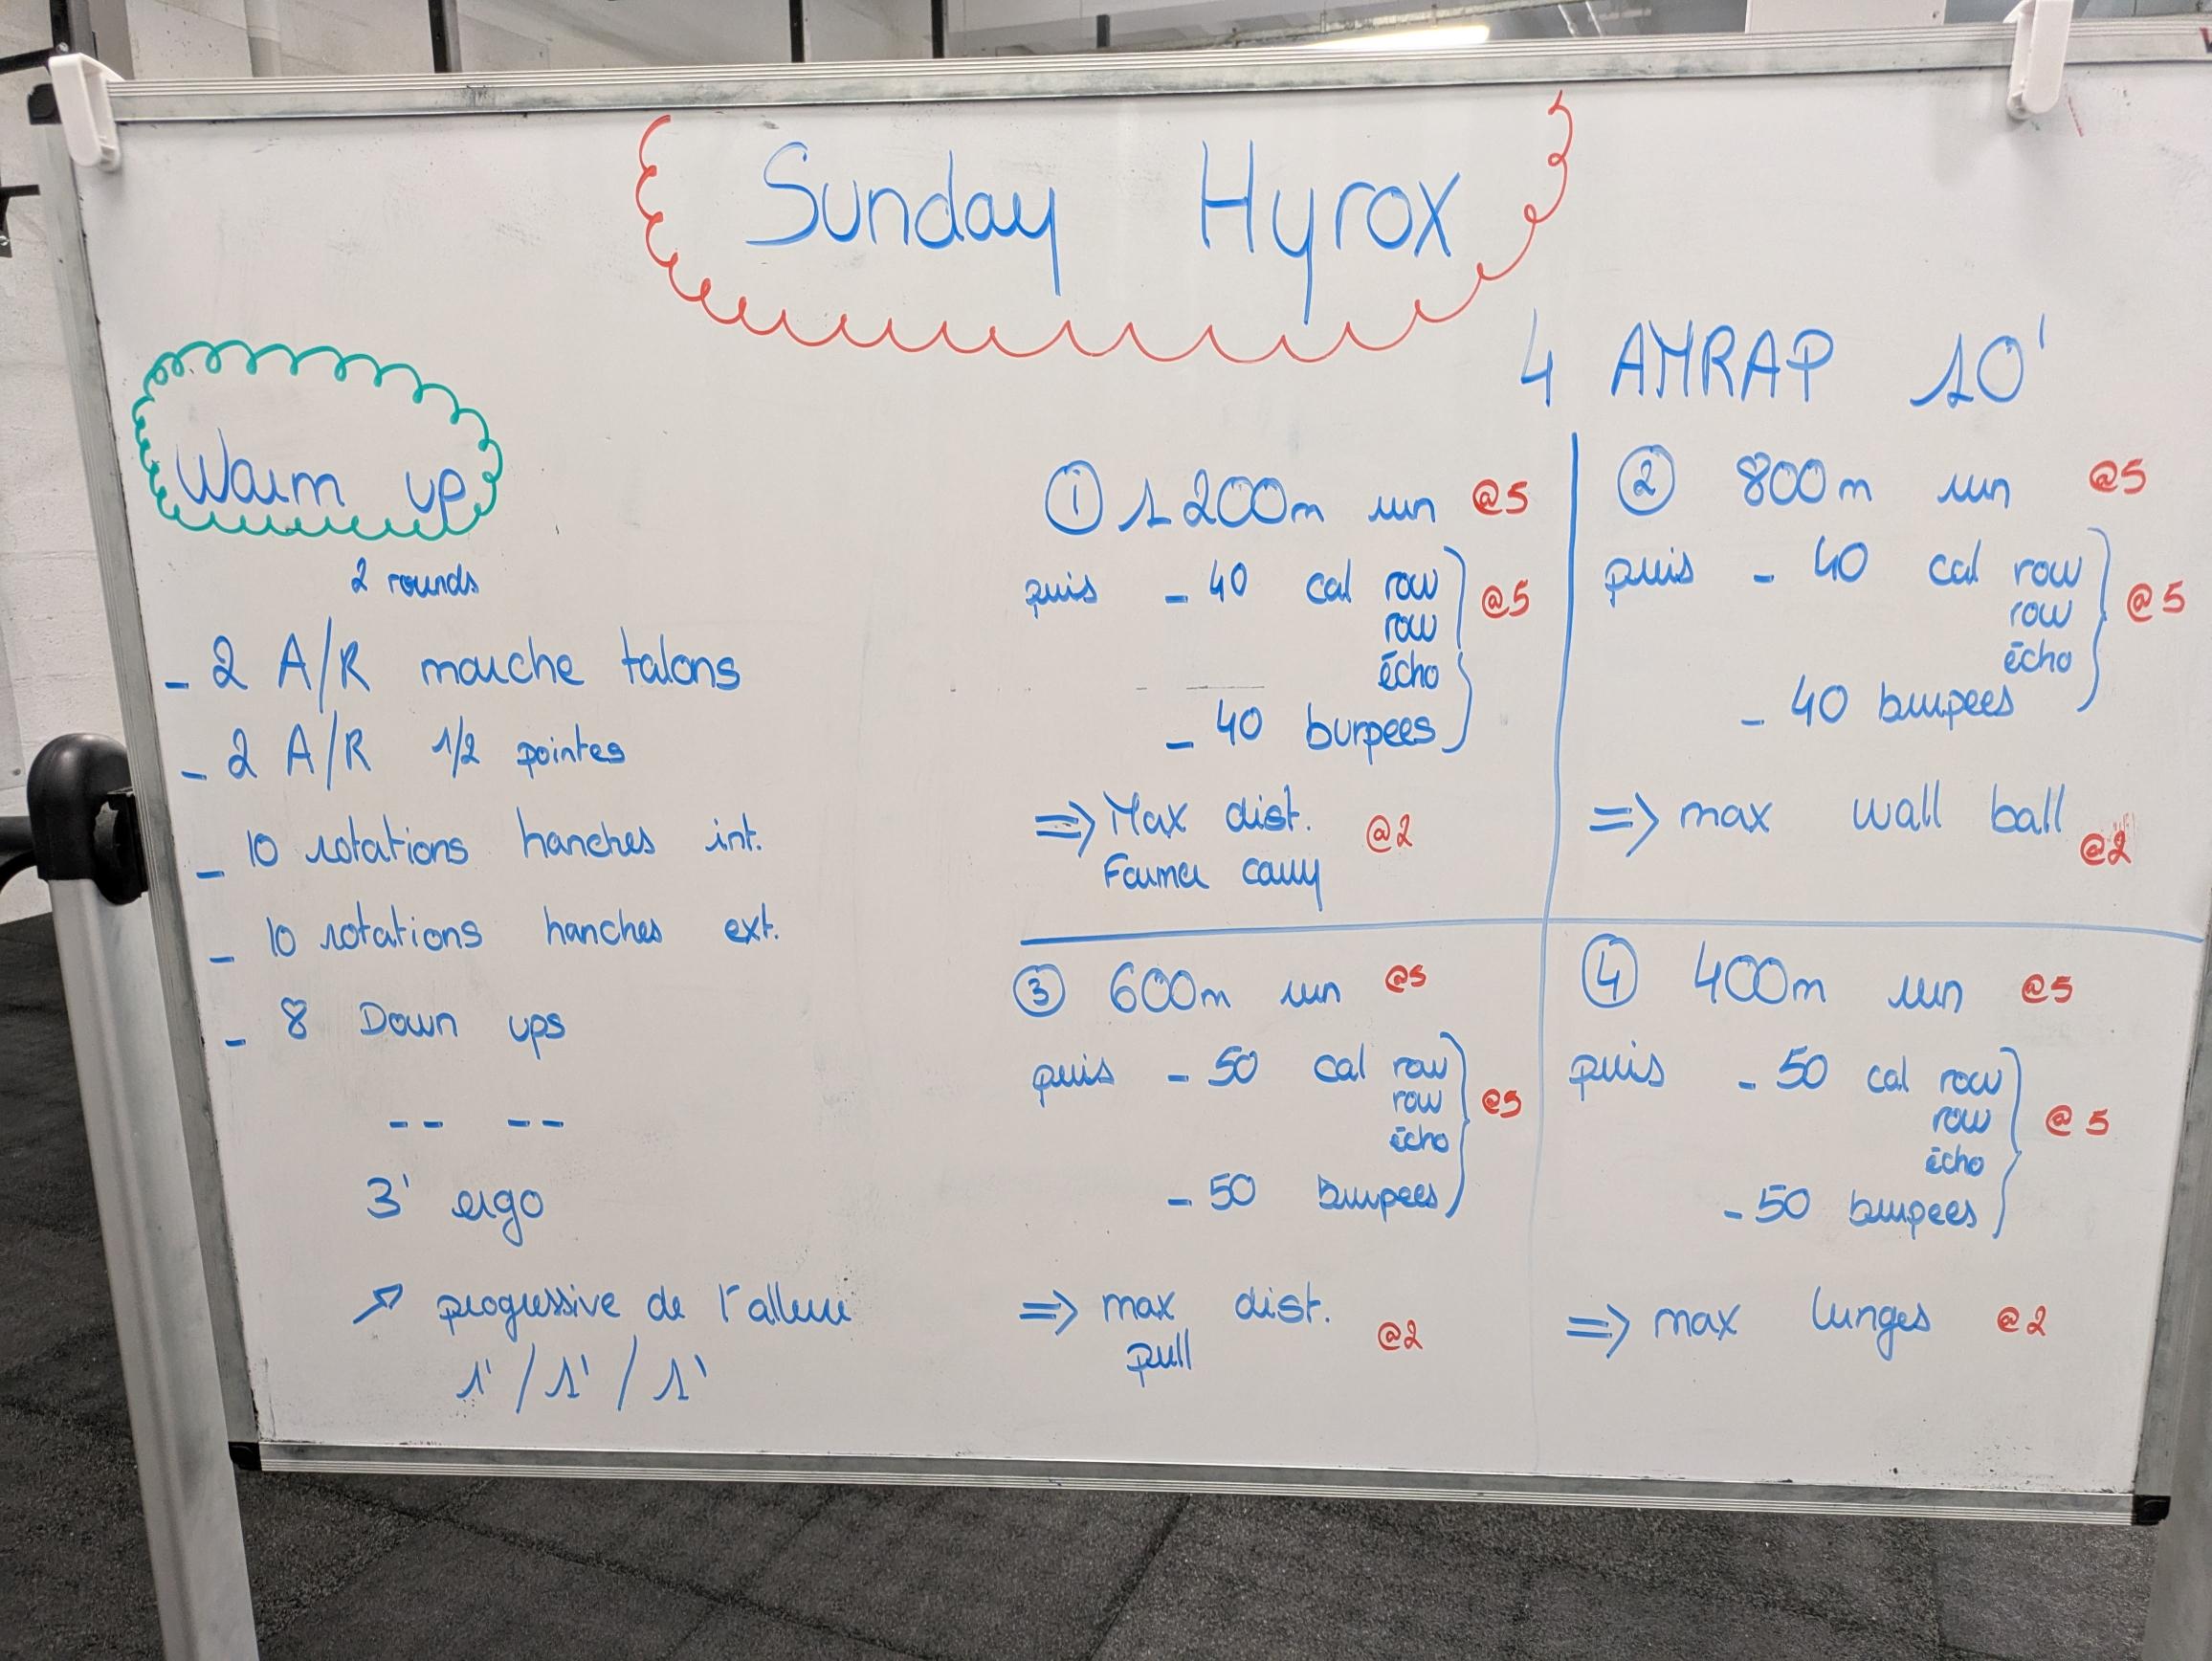 Sunday Hyrox
Warm up
2 rounds
- 2 A/R marche talons
- 2 A/R 1/2 pointes
- 10 rotations hanches int.
- 10 rotations hanches ext.
- 8 Down ups
-- --
3' ergo
↗ progressive de l'allure
1' / 1' / 1'
4 AMRAP 10'
① 1200m run @5
puis - 40 cal row @5
row
écho
- 40 burpees
=> Max dist. @2
Farmer carry
② 800m run @5
puis - 40 cal row @5
row
écho
- 40 burpees
=> max wall ball @2
③ 600m run @5
puis - 50 cal row @5
row
écho
- 50 burpees
=> max dist. @2
pull
④ 400m run @5
puis - 50 cal row @5
row
écho
- 50 burpees
=> max lunges @2